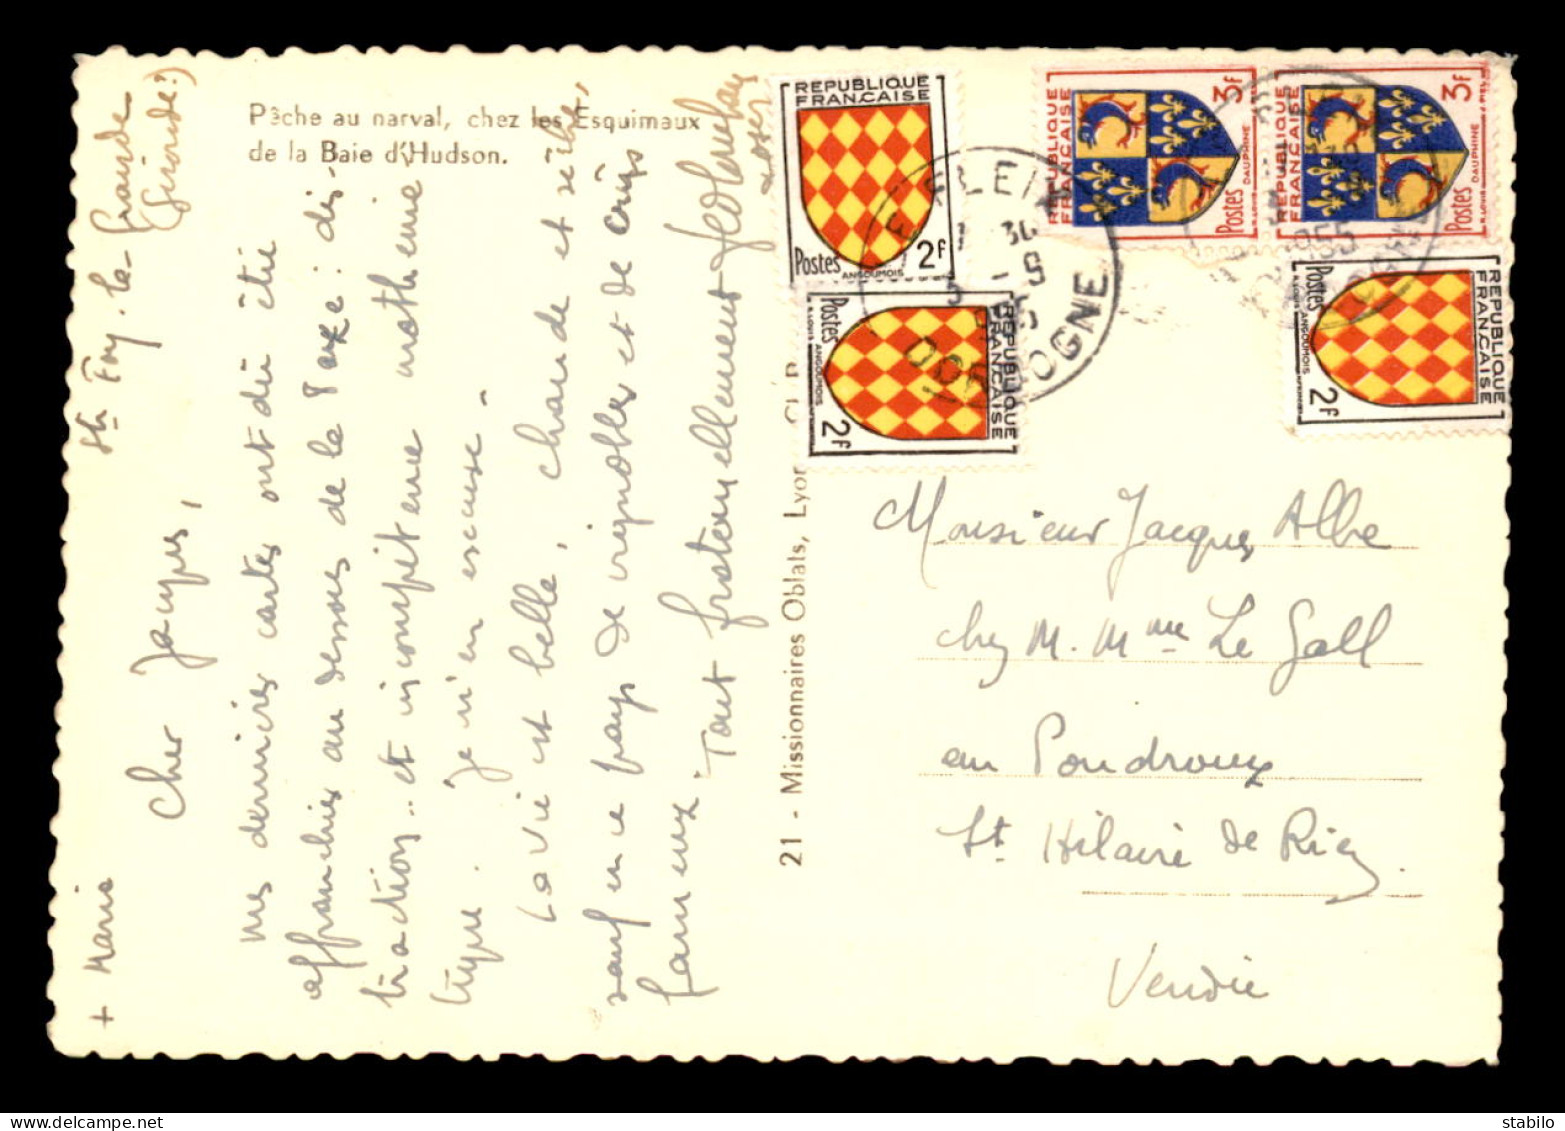 Pêche au narval, chez les Esquimaux
de la Baie d'Hudson.
+ Marie
Ste Foy-la-Grande
(Gironde)
Cher Jacques,
mes dernières cartes ont dû être
affranchies au dessous de la taxe : dis-
traction.. et incompétence mathéma
tique. Je m'en excuse -
La vie est belle, chaude et sèche,
sauf en ce pays de vignobles et de crûs
fameux. Tout fraternellement
21 - Missionnaires Oblats, Lyon
REPUBLIQUE
FRANÇAISE
Postes
2F
ANGOUMOIS
REPUBLIQUE
FRANÇAISE
Postes
2F
ANGOUMOIS
REPUBLIQUE
FRANÇAISE
3F
Postes
DAUPHINE
REPUBLIQUE
FRANÇAISE
3F
Postes
DAUPHINE
REPUBLIQUE
FRANÇAISE
Postes
2F
ANGOUMOIS
DORDOGNE
Monsieur Jacques Albe
chez M. Mme Le Gall
au Poudroux
St Hilaire de Riez
Vendée
stabilo